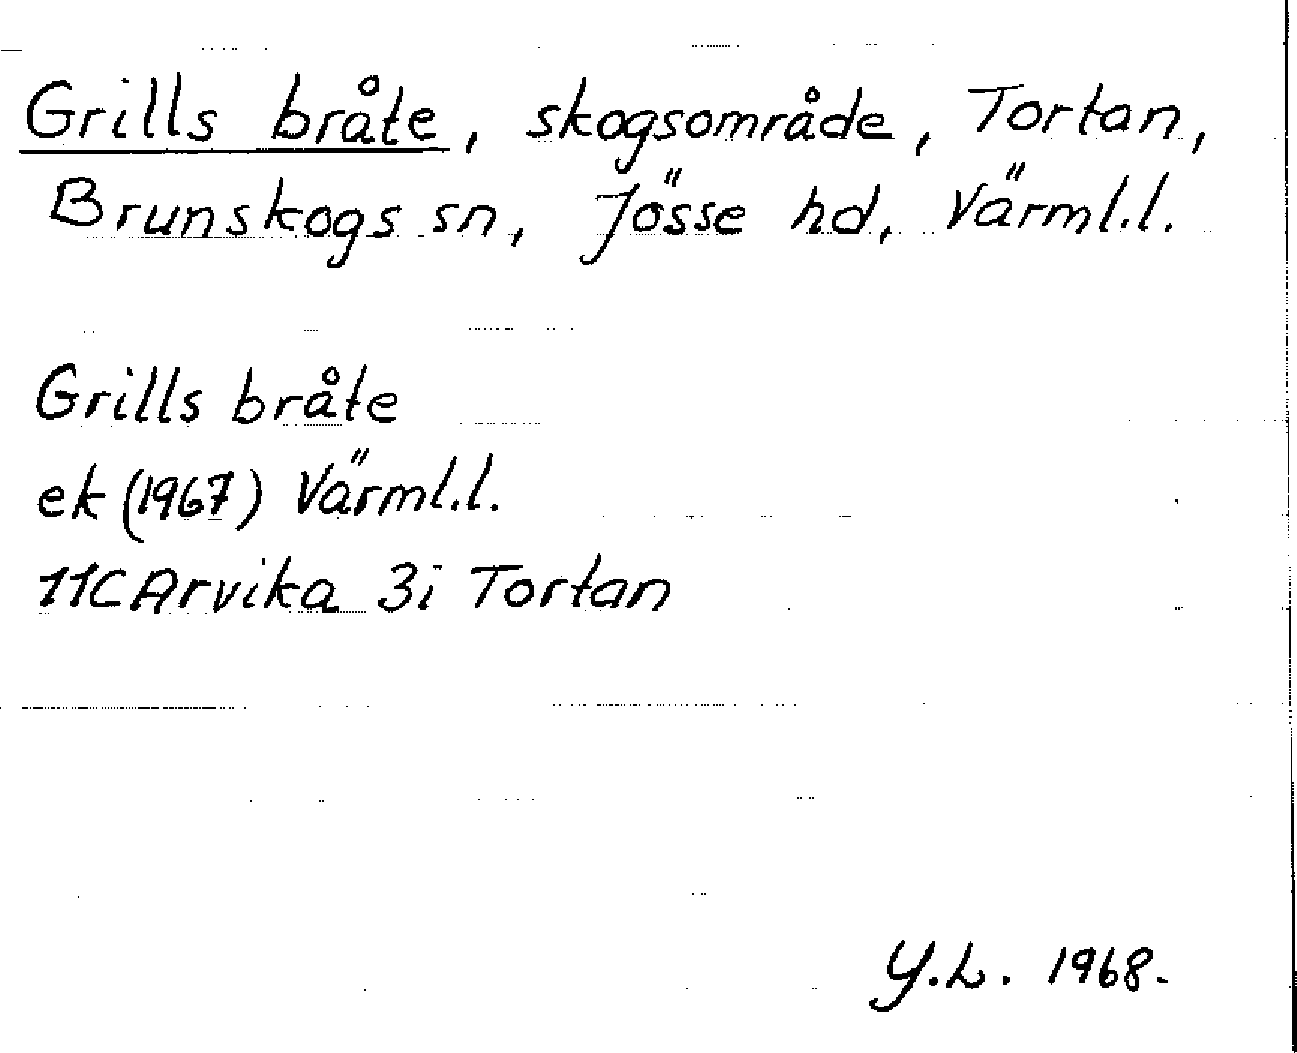 Grills bråte, skogsområde, Tortan,
Brunskogs sn, Jösse hd, Värml.l.
Grills bråte
ek (1967) Värml.l.
11C Arvika 3i Tortan
Y.L. 1968.